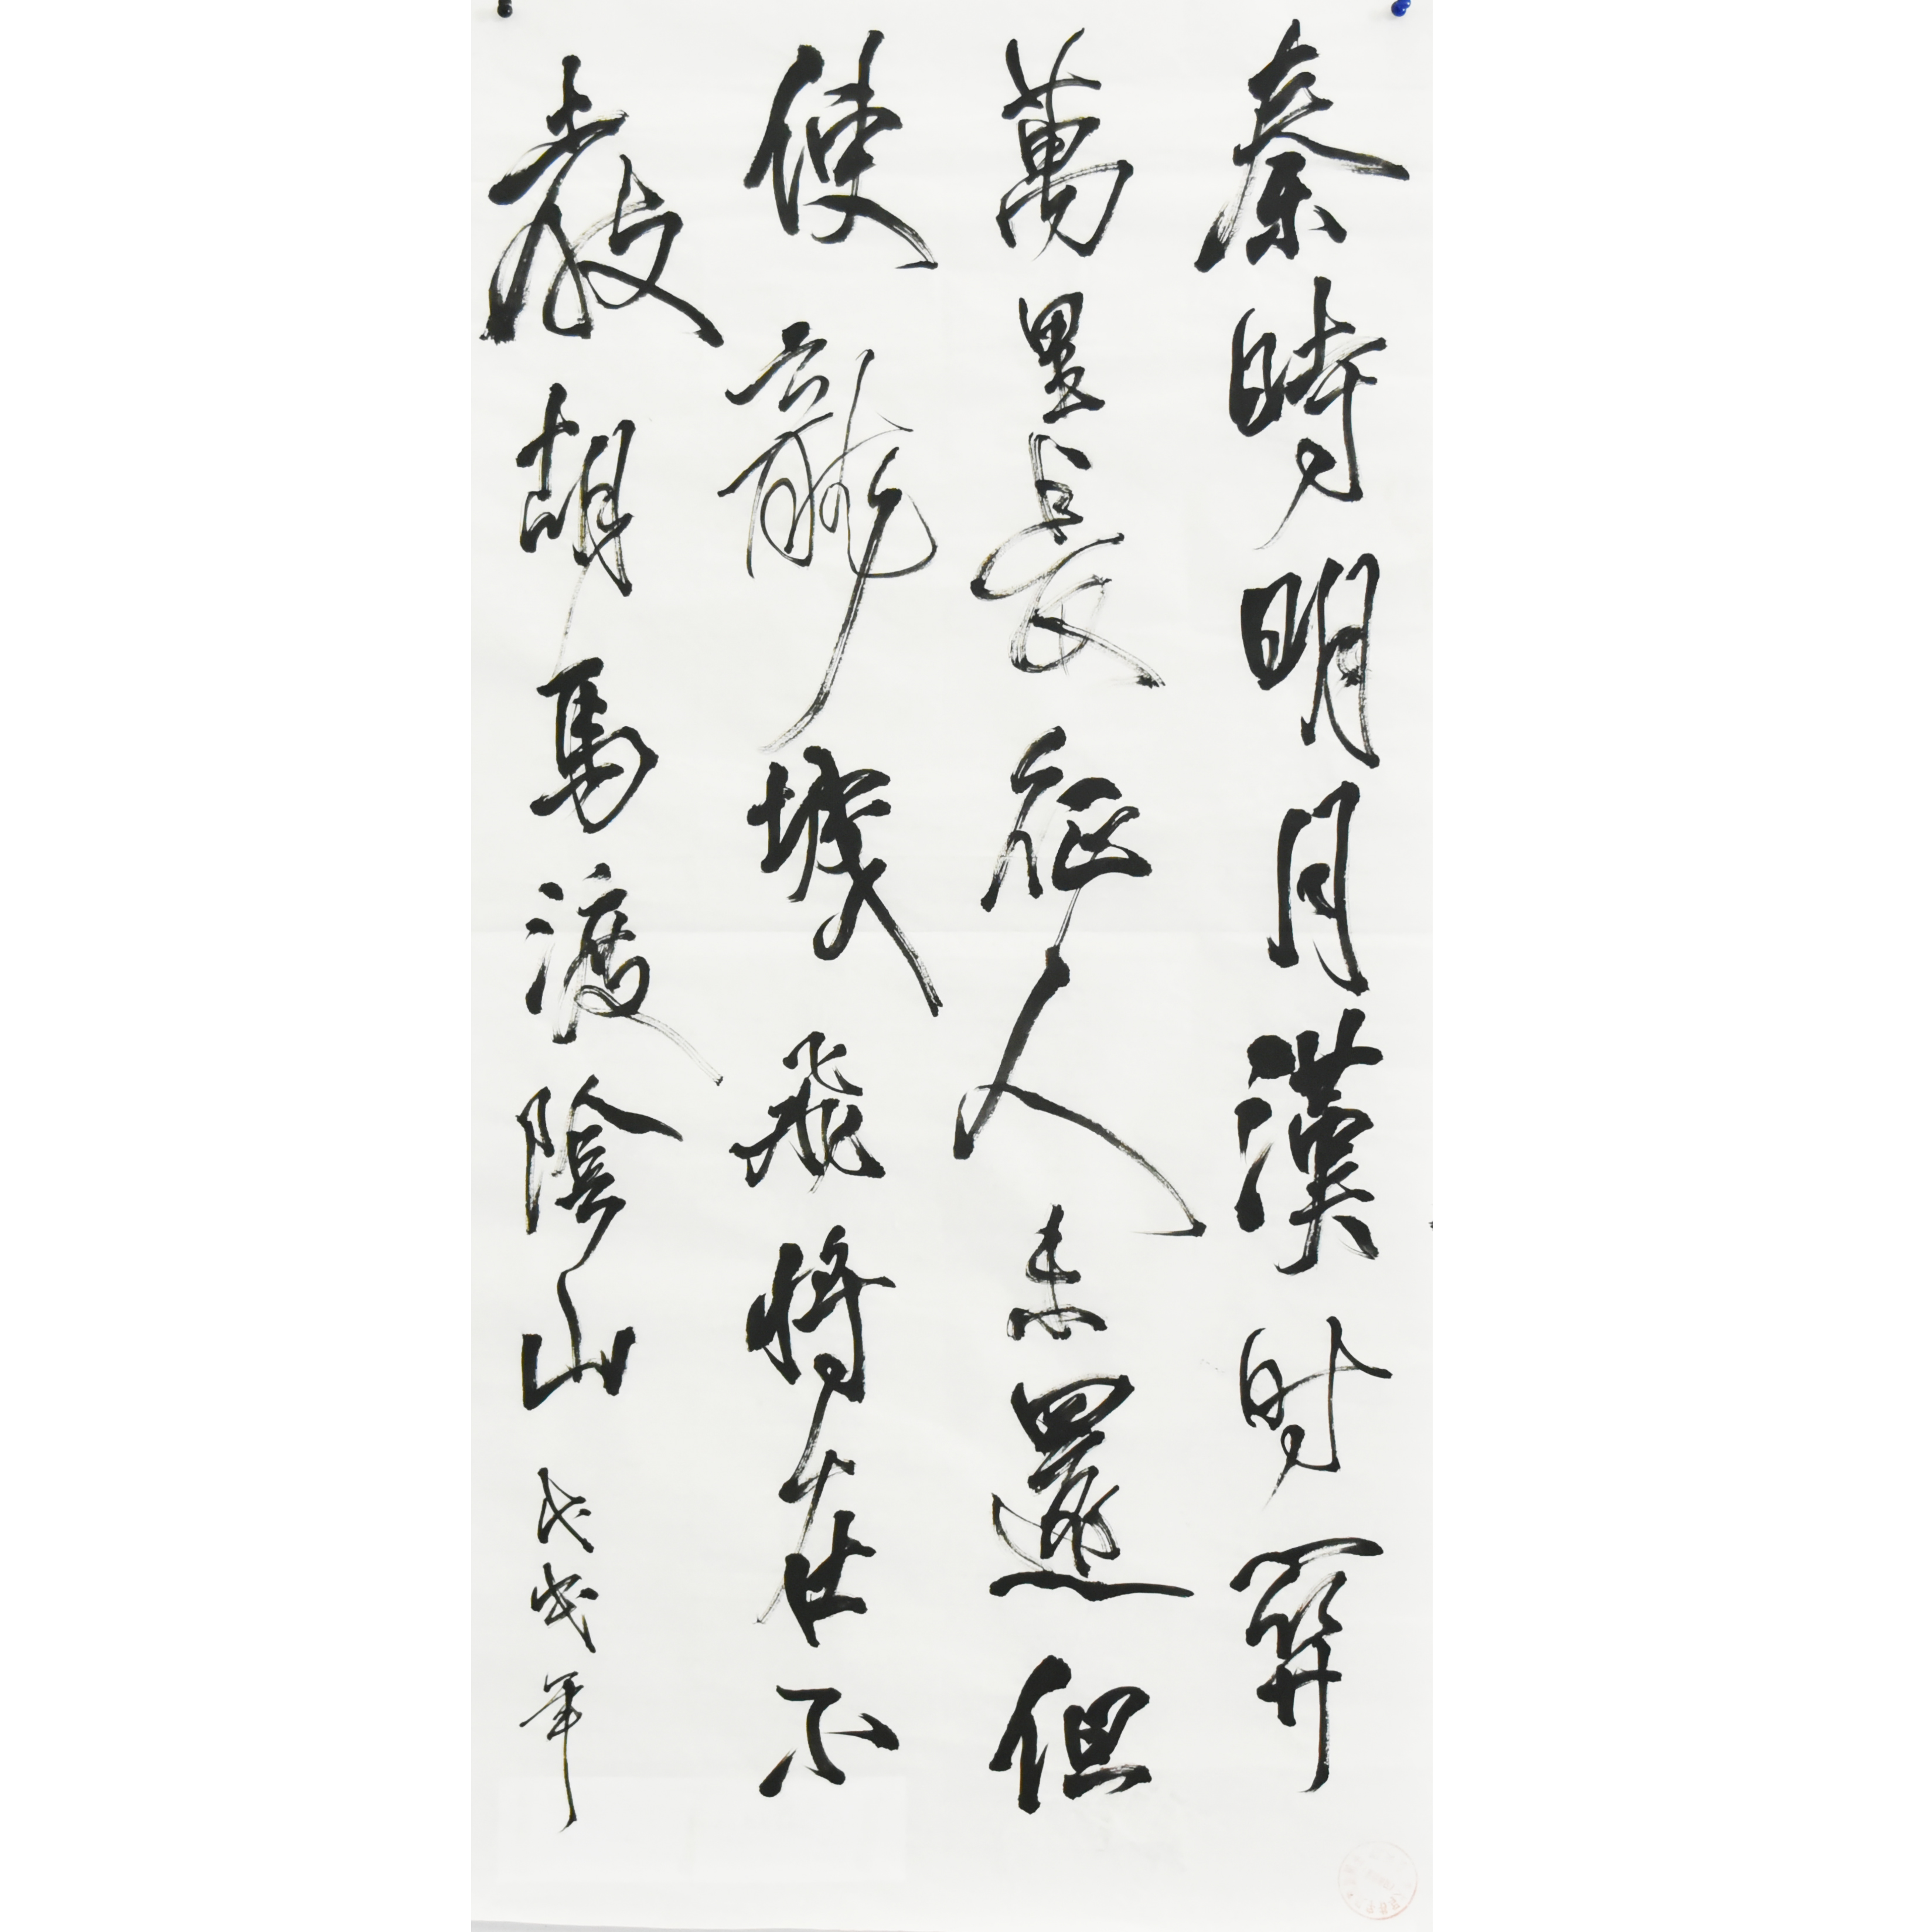 秦時明月漢時關
萬里長征人未還但
使龍城飛將在不
教胡馬渡陰山戊戌年